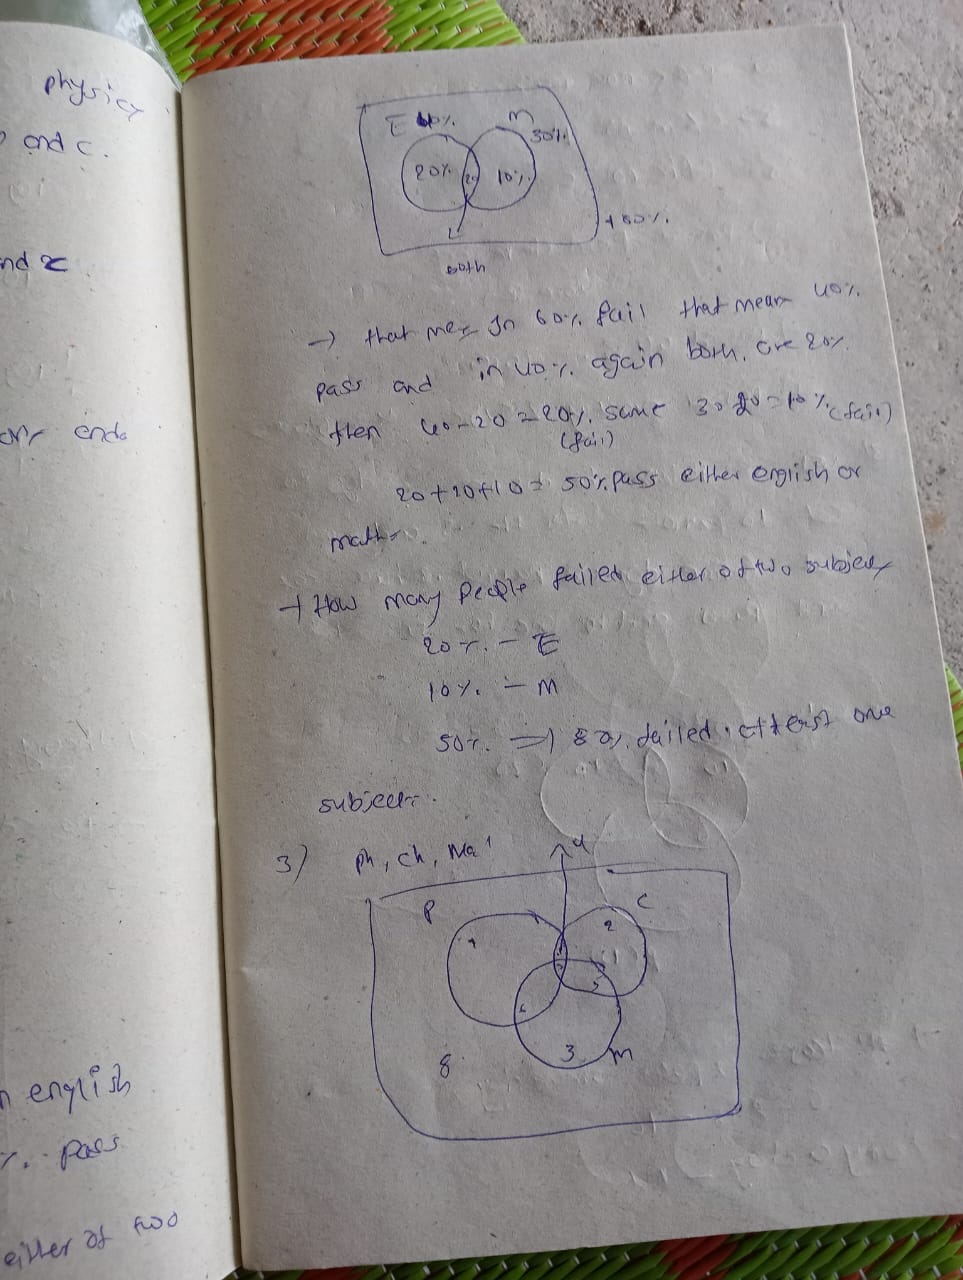 physics
and c.
nd x
ory ends
n english
%. pass
either of two
E 40%.
m
30%.
20%.
20
10%.
+50%.
both
→ that me in 60% fail that mean 40%.
pass and in 40%. again both are 20%.
then 40-20=20%. same 30-20=10%.(fail)
(fail)
20+20+10= 50%pass either english or
math
→ How many people failed either of two subject
20%. - E
10%. - M
50%. ⇒ 80%. failed atleast one
subject.
3) ph, ch, Ma
4
P
C
1
2
5
6
3
m
8